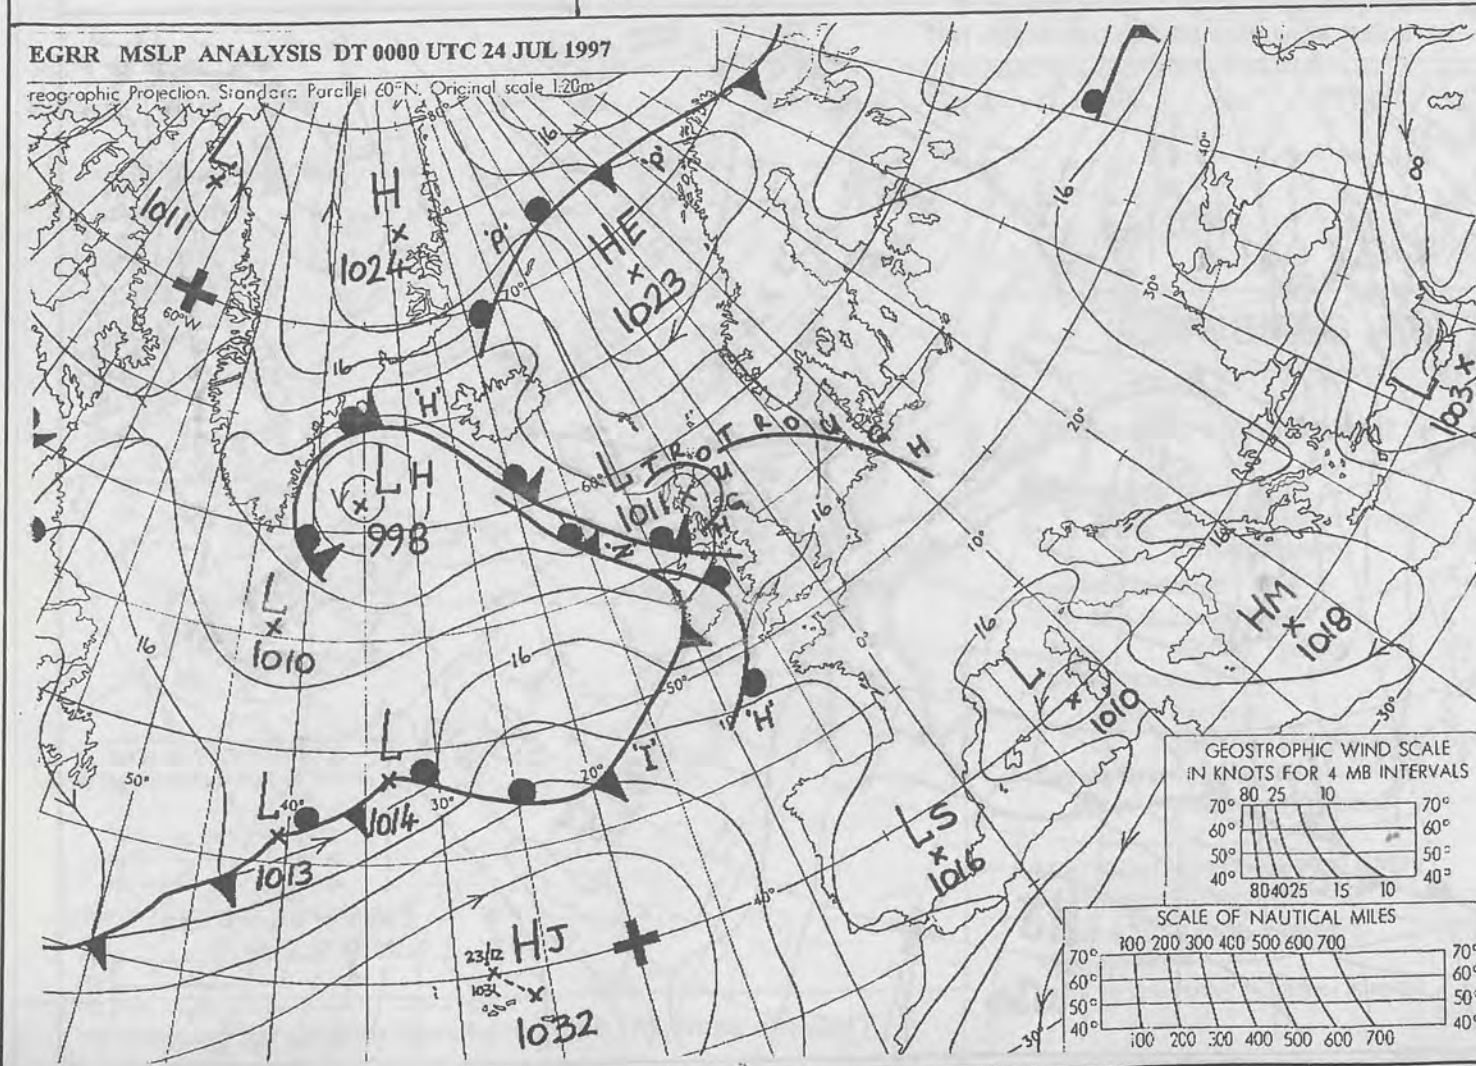 EGRR MSLP ANALYSIS DT 0000 UTC 24 JUL 1997
reographic Projection. Standard Parallel 60°N. Original scale 1:20m
80°
16
'P'
L
1011
H
1024
'P'
HE
1023
40°
16
8
30°
60°W
70°
16
'H'
L
1003
20°
L H
998
60°
L
1011
TROUGH
TROUGH
16
16
'N'
10°
0°
L
1010
16
16
50°
'H'
16
HM
1018
L
1010
30°
50°
L
1014
40°
30°
20°
'T'
L
1013
LS
1016
40°
HJ
23/12
1031
1032
30°
GEOSTROPHIC WIND SCALE
IN KNOTS FOR 4 MB INTERVALS
80 25 10
70° 70°
60° 60°
50° 50°
40° 40°
80 40 25 15 10
SCALE OF NAUTICAL MILES
100 200 300 400 500 600 700
70° 70°
60° 60°
50° 50°
40° 40°
100 200 300 400 500 600 700